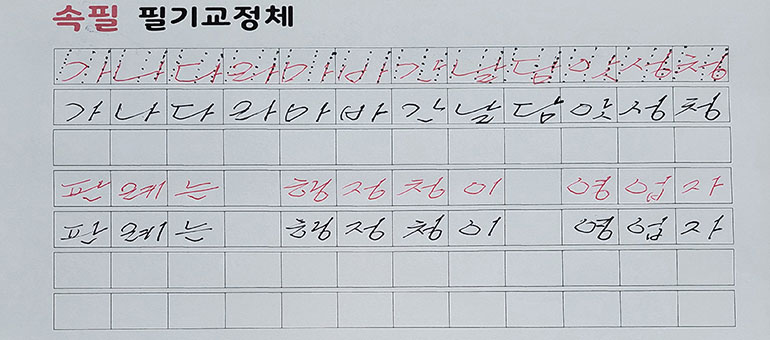 속필 필기교정체
가나다라마바간날담앗성청
가나다라마바간날담앗성청
판례는 행정청이 영업자
판례는 행정청이 영업자